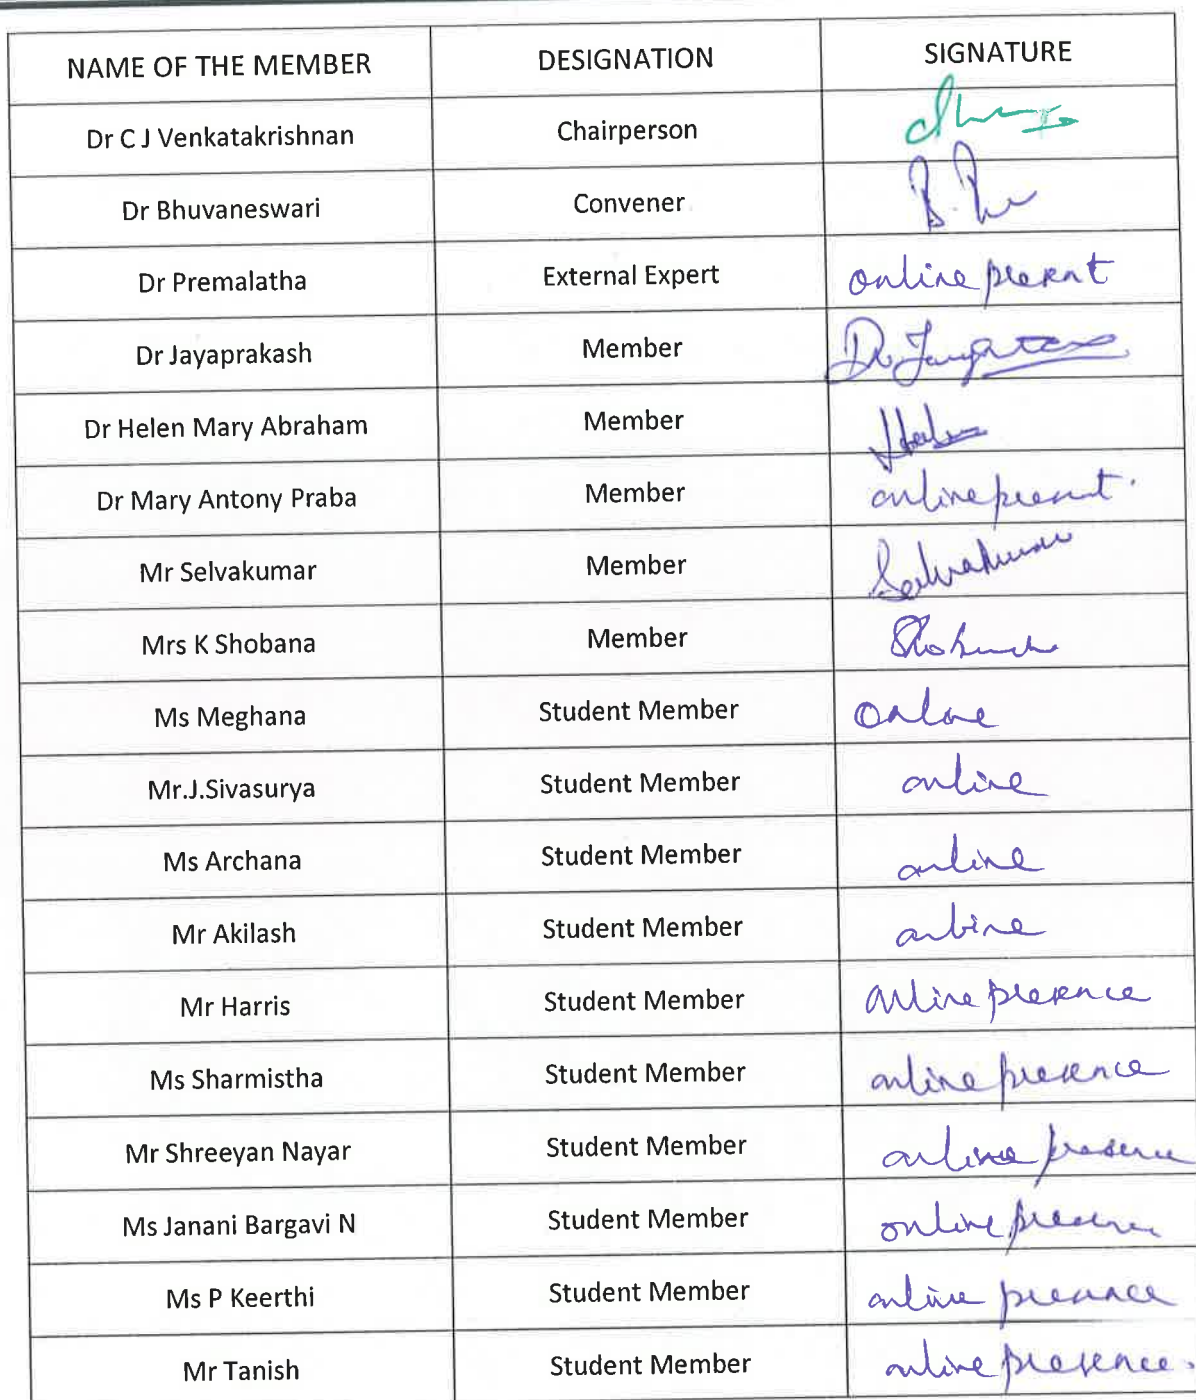 NAME OF THE MEMBER DESIGNATION SIGNATURE
Dr C J Venkatakrishnan Chairperson
Dr Bhuvaneswari Convener
Dr Premalatha External Expert online present
Dr Jayaprakash Member
Dr Helen Mary Abraham Member
Dr Mary Antony Praba Member online present.
Mr Selvakumar Member Selvakumar
Mrs K Shobana Member Shobana
Ms Meghana Student Member Online
Mr.J.Sivasurya Student Member online
Ms Archana Student Member online
Mr Akilash Student Member online
Mr Harris Student Member online presence
Ms Sharmistha Student Member online presence
Mr Shreeyan Nayar Student Member online presence
Ms Janani Bargavi N Student Member online presence
Ms P Keerthi Student Member online presence
Mr Tanish Student Member online presence.